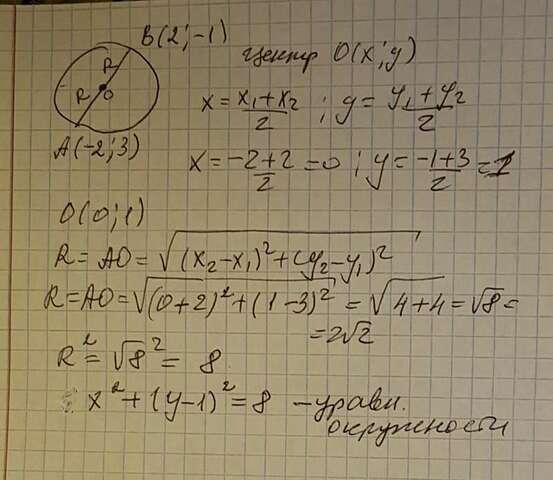 B(2;-1)
центр O(x;y)
R
R O
A(-2;3)
x = (x₁+x₂)/2 ; y = (y₁+y₂)/2
x = (-2+2)/2 = 0 ; y = (-1+3)/2 = 1
O(0;1)
R = AO = √((x₂-x₁)²+(y₂-y₁)²)
R=AO=√((0+2)²+(1-3)²) = √(4+4) = √8 =
= 2√2
R² = √8² = 8
x²+(y-1)² = 8 – уравн.
окружности